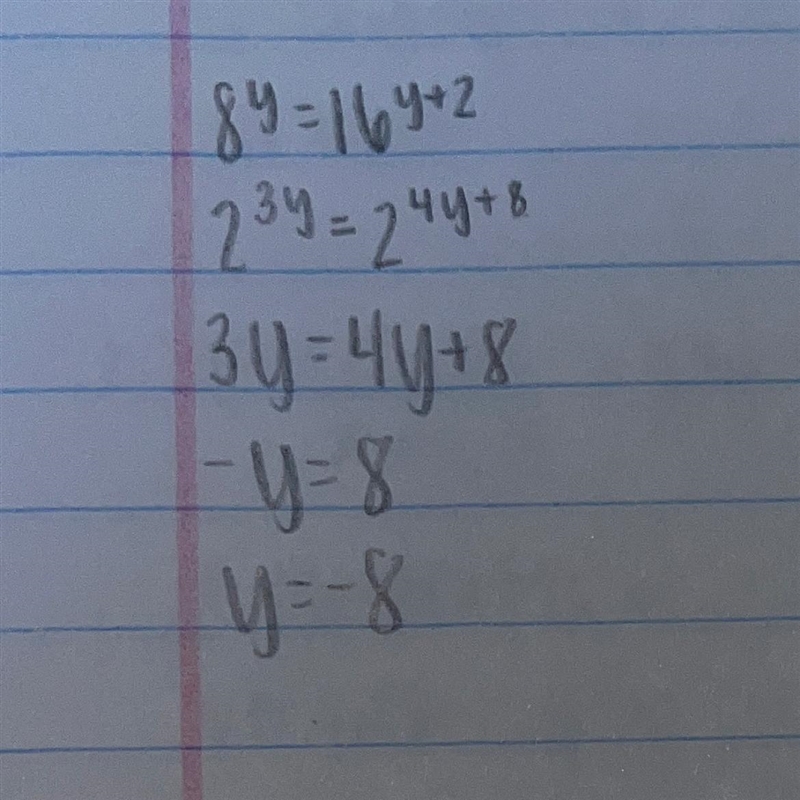 8^y = 16^{y+2}
2^{3y} = 2^{4y+8}
3y = 4y + 8
-y = 8
y = -8